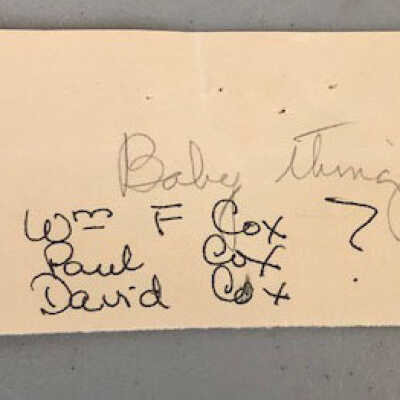 Baby thing
Wm F Cox ?
Paul Cox
David Cox